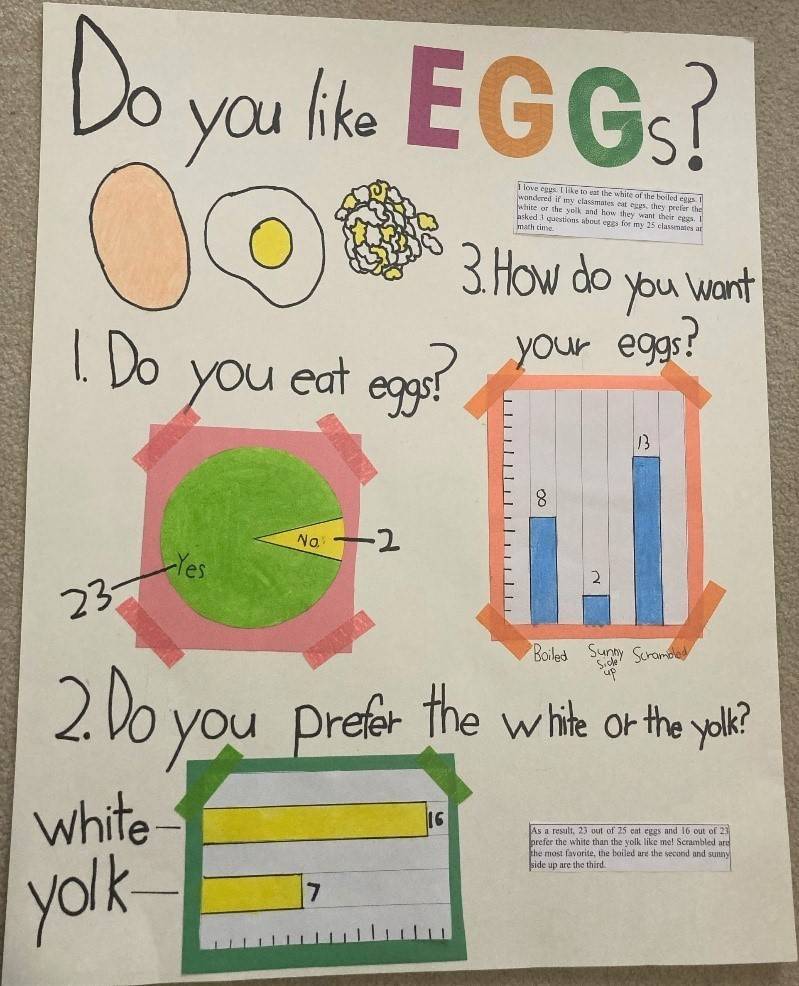 Do you like EGGs?
I love eggs. I like to eat the white of the boiled eggs. I
wondered if my classmates eat eggs, they prefer the
white or the yolk and how they want their eggs. I
asked 3 questions about eggs for my 25 classmates at
math time.
1. Do you eat eggs?
Yes
No
23
2
3. How do you want
your eggs?
8
2
13
Boiled
Sunny
side
up
Scrambled
2. Do you prefer the white or the yolk?
white
16
yolk
7
As a result, 23 out of 25 eat eggs and 16 out of 23
prefer the white than the yolk like me! Scrambled are
the most favorite, the boiled are the second and sunny
side up are the third.